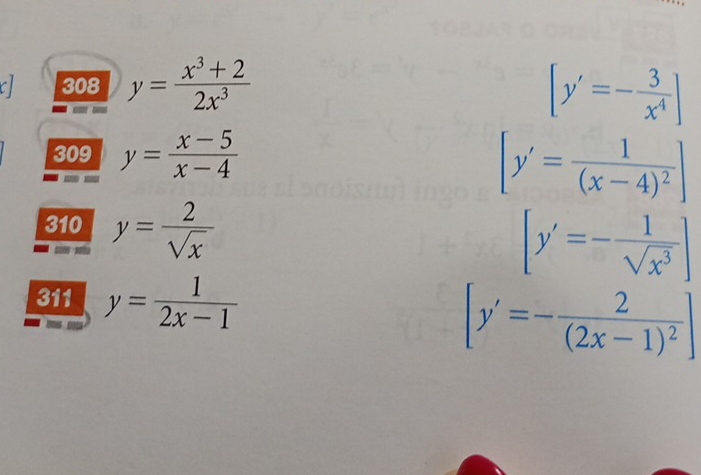 308 y = (x³ + 2)/(2x³) [y′ = −3/x⁴]
309 y = (x − 5)/(x − 4) [y′ = 1/(x − 4)²]
310 y = 2/√x [y′ = −1/√x³]
311 y = 1/(2x − 1) [y′ = −2/(2x − 1)²]